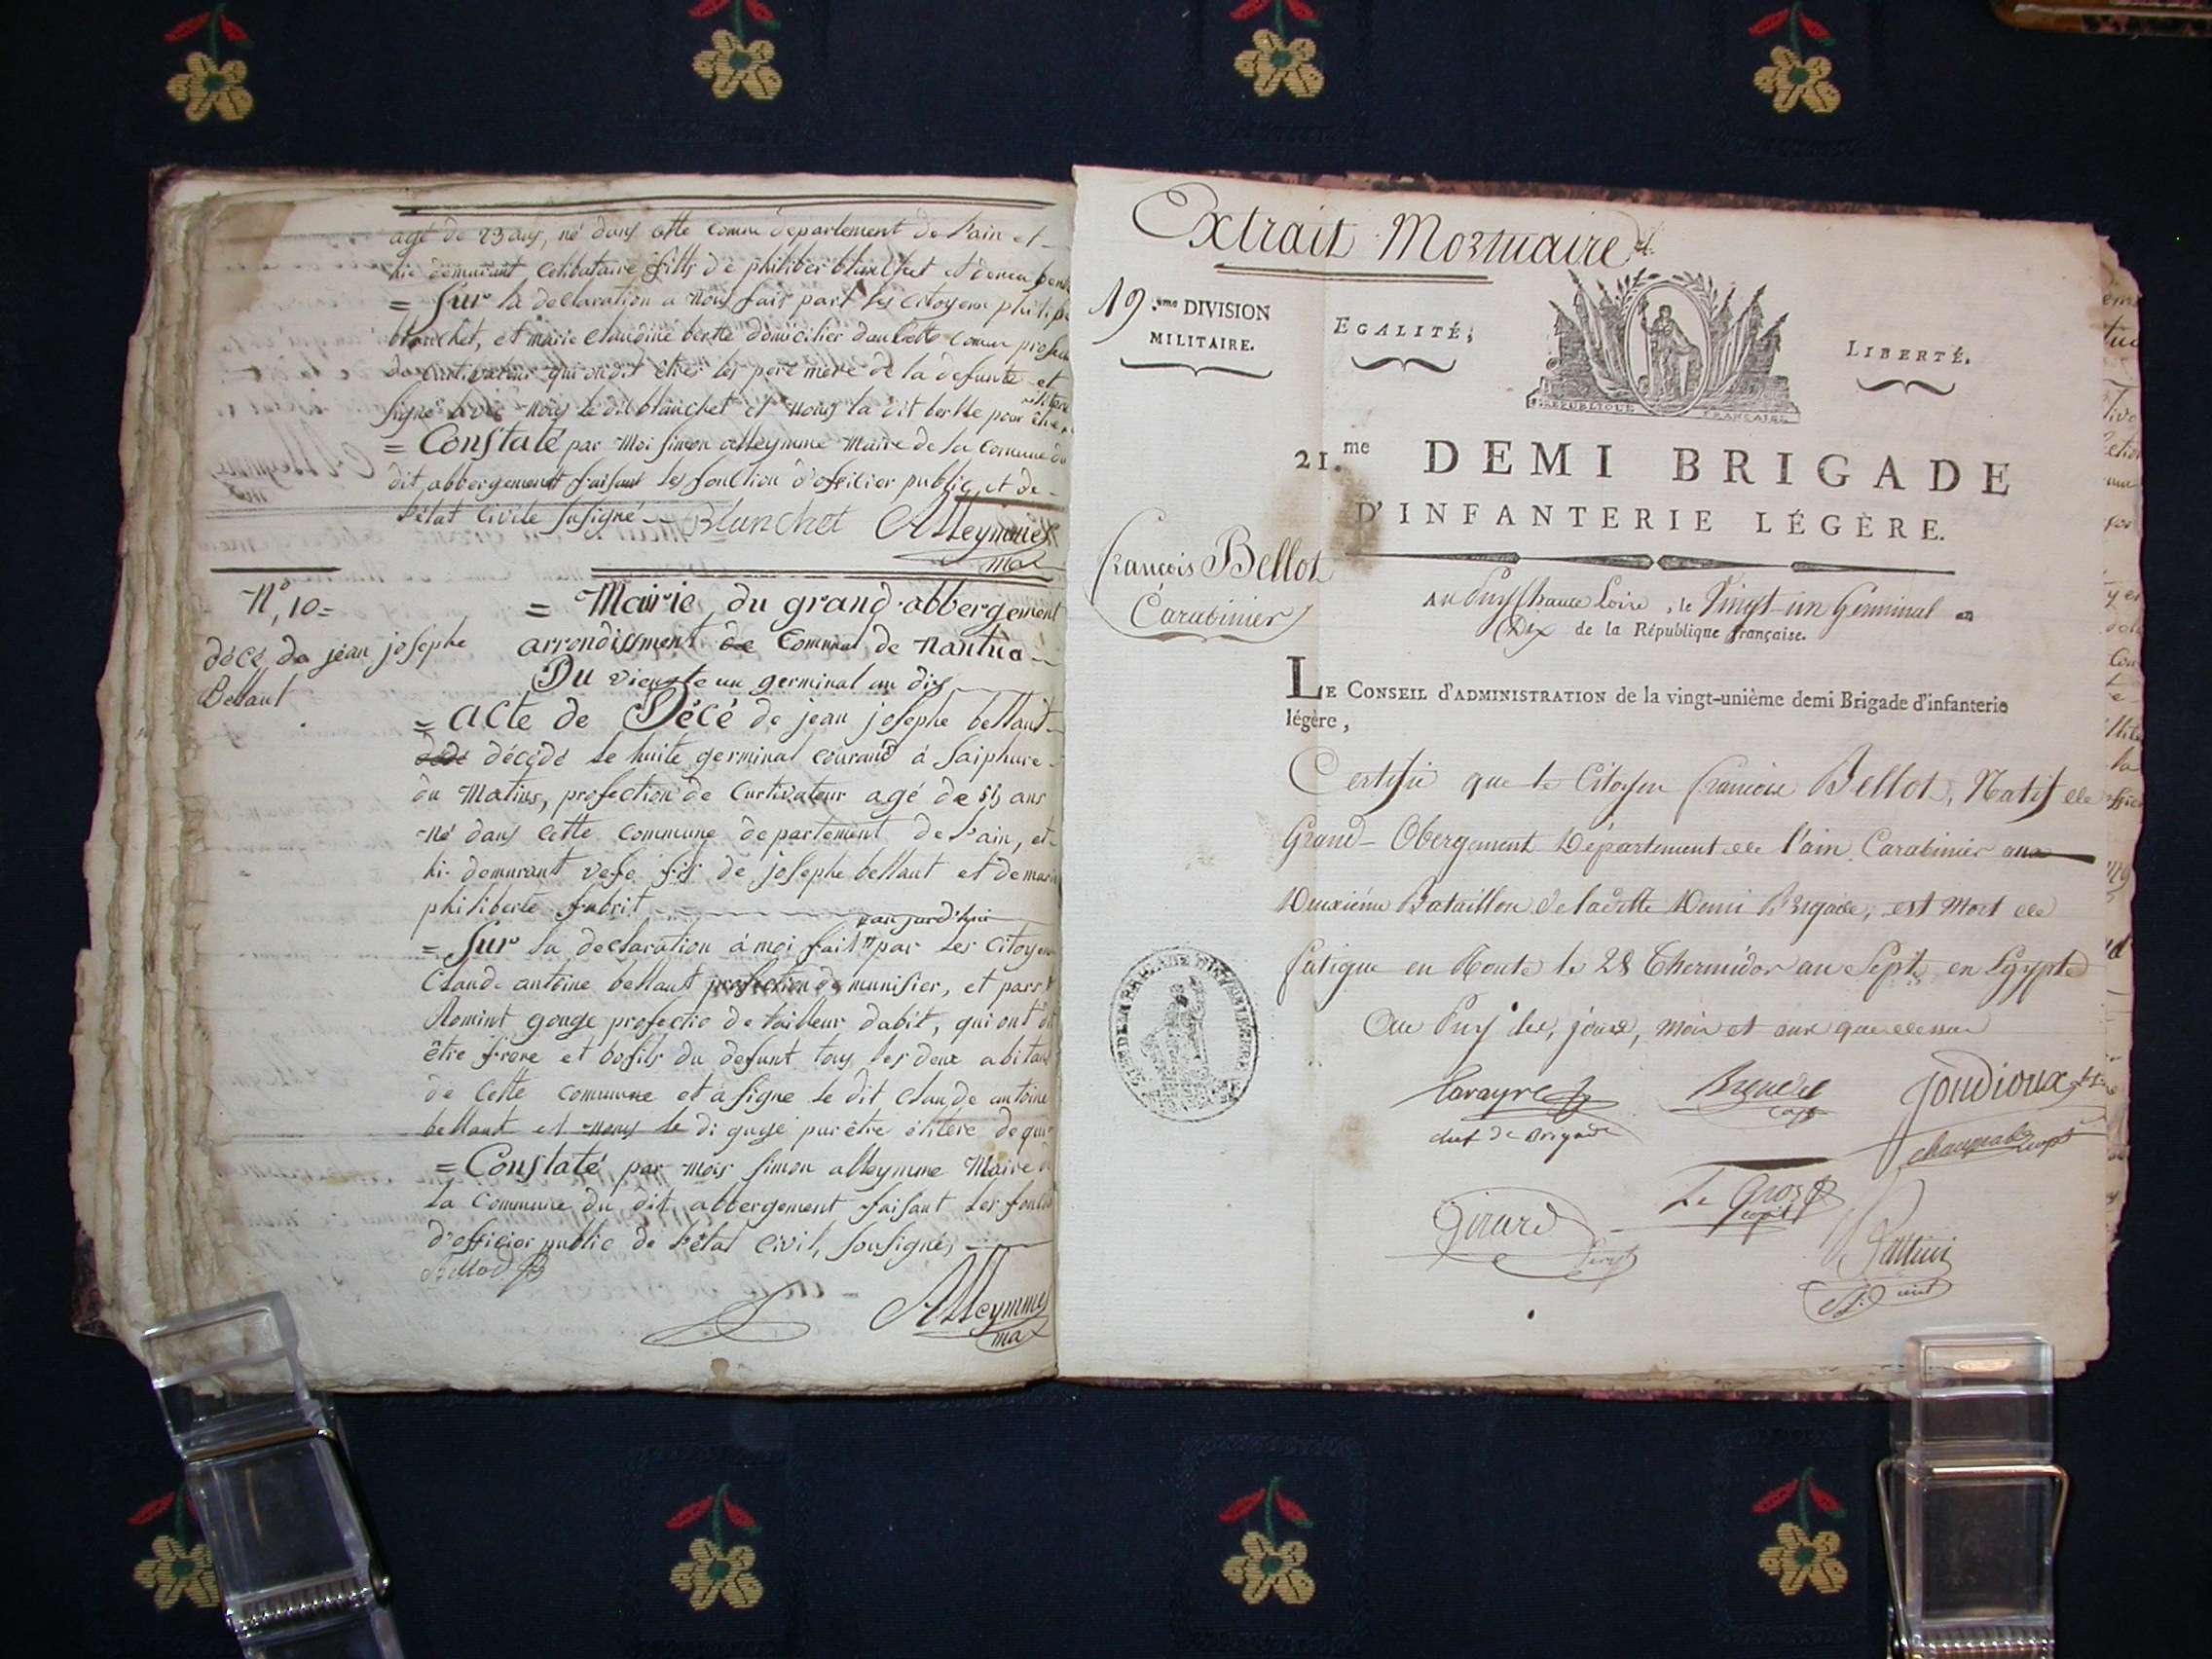 agé de 23 ans, né dans cette comune departement de l'ain et
hi demurant celibataire fills de philiber blanchet et de
= Sur la declaration a nous fais part les citoyens
blanchet, et marie claudine bertte domicilier dans cette comun
de curtivateur qui ondit etres les pere mere de la defunte et
signé avec nous le dit blanchet et nous la dit bertte pour être
= Constaté par moi simon alleymme maire de la comune du
dit abbergement faisant les fonction d'officier public et de
l'état civile susigné — Blanchet Alleymme
ma
N° 10 =
décé de jean josephe
Bellaut
= Mairie, du grand abbergement
arrondissment de Comunal de nantua
Du vient e un germinal an dix
= acte de Décé de jean josephe bellaut
dédé décédé le huite germinal courand à
du matins, profection de curtivateur agé de 55 ans
né dans cette commune departement de l'ain, et
hi demurant vefe fis de josephe bellaut et de marie
philiberte fabrit
= Sur la declaration à moi fait par les citoyens
aujurd'hui
Claude antoine bellaut profection de munisier, et parst
Romint gouge profectio de tailleur dabit, qui ont dit
être frere et bofils du defunt tous les deux abitant
de cette comune et a signe le dit claude antoine
bellaut et nous le di guge pur être élitere de
= Constaté par mois simon alleymme Maire de
la commune du dit abbergement faisant les fonction
d'officier public de l'état civil, sousignés
Bellod
Alleymme
ma
Extrait Mortuaire
19.eme DIVISION
MILITAIRE.
EGALITÉ,
LIBERTÉ.
REPUBLIQUE FRANÇAISE
21.me DEMI BRIGADE
D'INFANTERIE LÉGÈRE.
françois Bellot
Carabinier
AU Puy haute Loire, le Vingt un Germinal an
Dix de la République française.
LE CONSEIL d'ADMINISTRATION de la vingt-unième demi Brigade d'infanterie
légère,
Certifie que le Citoyen françois Bellot, Natif de
Grand-Obergement Département de l'ain Carabinier au
Deuxiéme Bataillon de ladite Demi Brigade, est Mort de
fatigue en Route le 28 Thermidor an Sept en Egypte
Au Puy les, jours, mois et ans que dessus
Lavayre
chef de Brigade
Capt
Jondioux
Girard
Le Gros
Capit